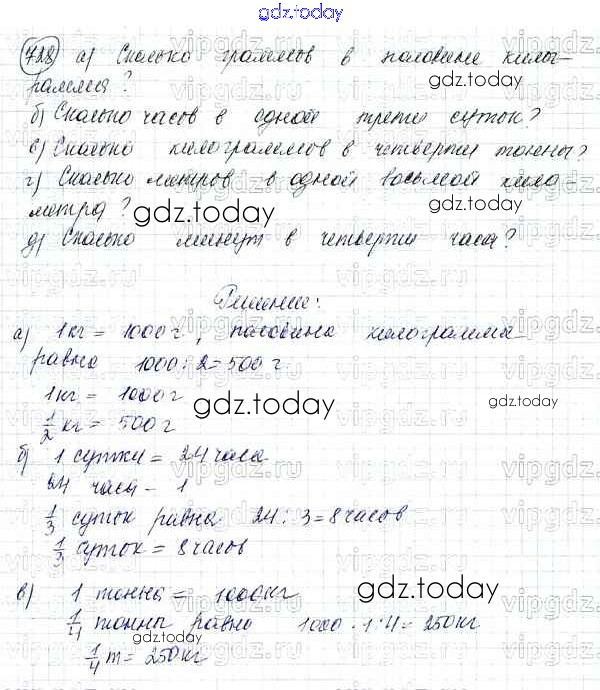 gdz.today
728 а) Сколько граммов в половине кило-
грамма?
gdz.today
б) Сколько часов в одной трети суток?
в) Сколько килограммов в четверти тонны?
г) Сколько метров в одной восьмой кило-
метра?
gdz.today
gdz.today
д) Сколько минут в четверти часа?
Решение:
а) 1 кг = 1000 г, половина килограмма
равна 1000 : 2 = 500 г.
1 кг = 1000 г
gdz.today
gdz.today
1/2 кг = 500 г
б) 1 сутки = 24 часа
24 часа - 1
1/3 суток равна 24 : 3 = 8 часов
1/3 суток = 8 часов
в) 1 тонна = 1000 кг
gdz.today
1/4 тонны равна 1000 · 1 : 4 = 250 кг
gdz.today
1/4 т = 250 кг
vipgdz.ru